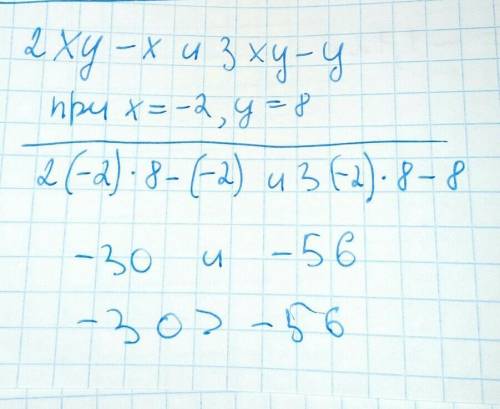 2xy-x и 3xy-y
при x=-2, y=8
2(-2)·8-(-2) и 3(-2)·8-8
-30 и -56
-30> -56